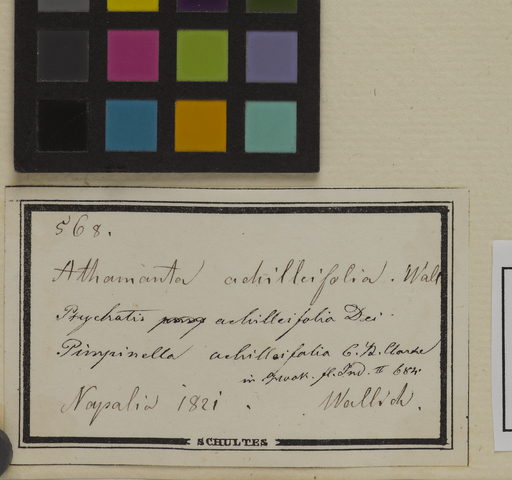 568.
Athamanta achilleifolia. Wall
Ptychotis achilleifolia Dei.
Pimpinella achilleifolia C. B. Clarke
in Hook. fl. Ind. II 684
Napalia 1821. Wallich.
SCHULTES